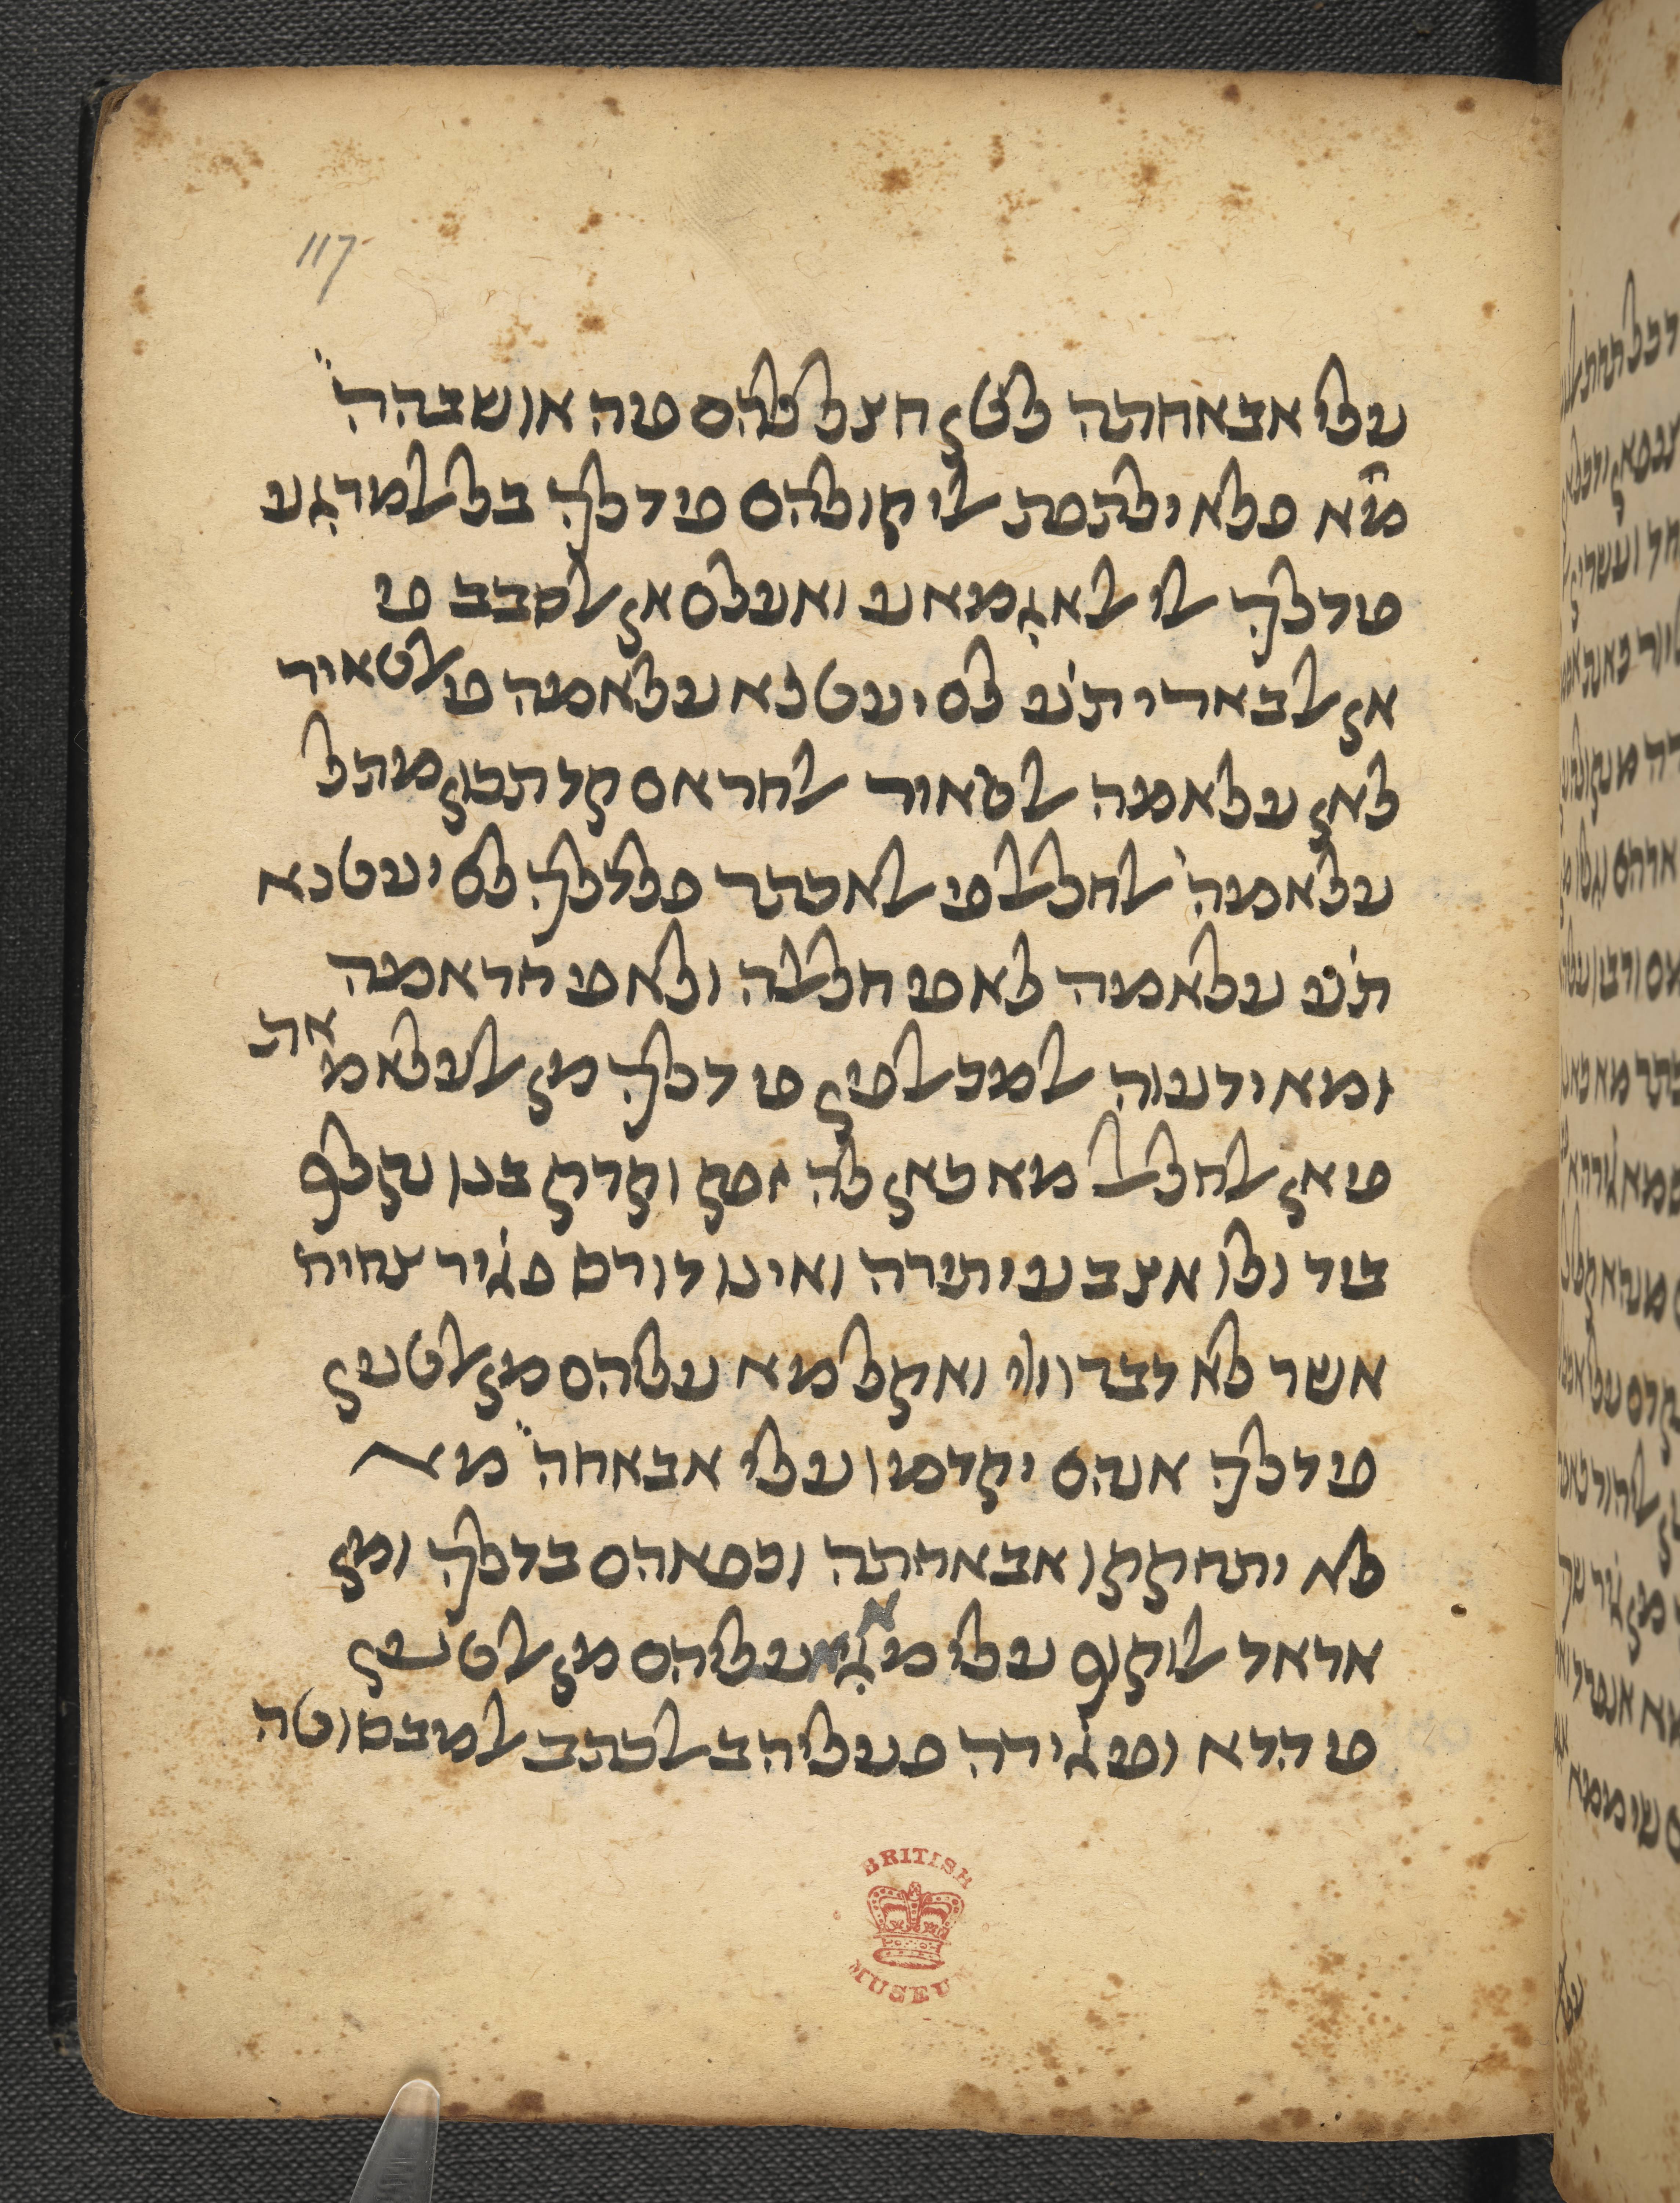 117
עלי אבאחתה לכן חצל כלהם פיה אושבהה
מיא פלא ילתפת אלי קולהם פי דלך בל אלמרגע
פי דלך אלי אלאגמאע ואעלם אן אלסבב פי
אן אלבארי תע׳ לם יעטנא עלאמה פי אלטאיר
לאן עלאמה אלטאיר אלחראם קד תכון מתל
עלאמה אלחלאל פי אלאכתר פלדלך לם יעטנא
תע׳ עלאמה לא פי חלאלה ולא פי חראמה
ומא ידעוה אלמכאלפין פי דלך מן אלעלאמאת
פי אן אלחלאל מא כאן לה זפק וקרקבנו נקלף
ביד ולו אצבע יתירה ואינו דורס פגיר צחיח
אשר לא דברו ויי ואקל מא עליהם מן אלטען
פי דלך אנהם יקדמו עלי אבאחה מיא
לא יתחקקו אבאחתה וכפאהם בדלך ומן
אראד אלוקוף עלי מא עליהם מן אלטען
פי הדא ופי גירה פעליה באלכתב אלמבסוטה
BRITISH
MUSEUM